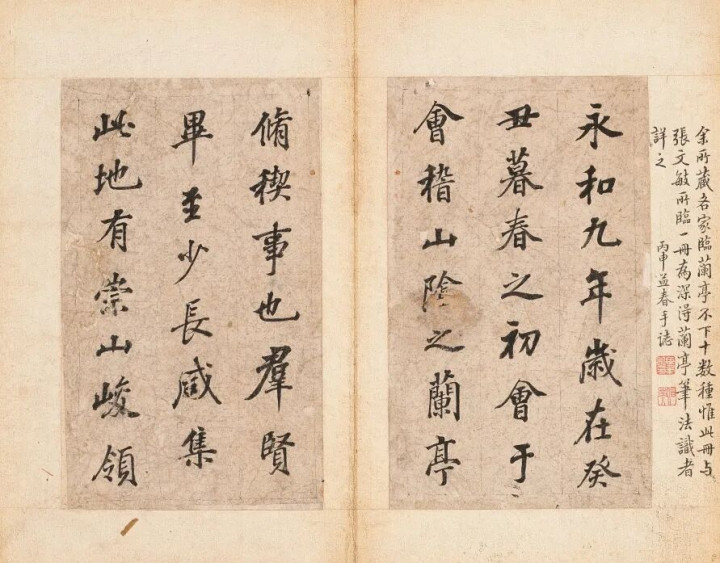 余所藏各家臨蘭亭不下十數種惟此冊與
張文敏所臨一冊為深得蘭亭筆法識者
詳之
丙申益春手誌
永和九年歲在癸
丑暮春之初會于
會稽山陰之蘭亭
脩稧事也羣賢
畢至少長咸集
此地有崇山峻領